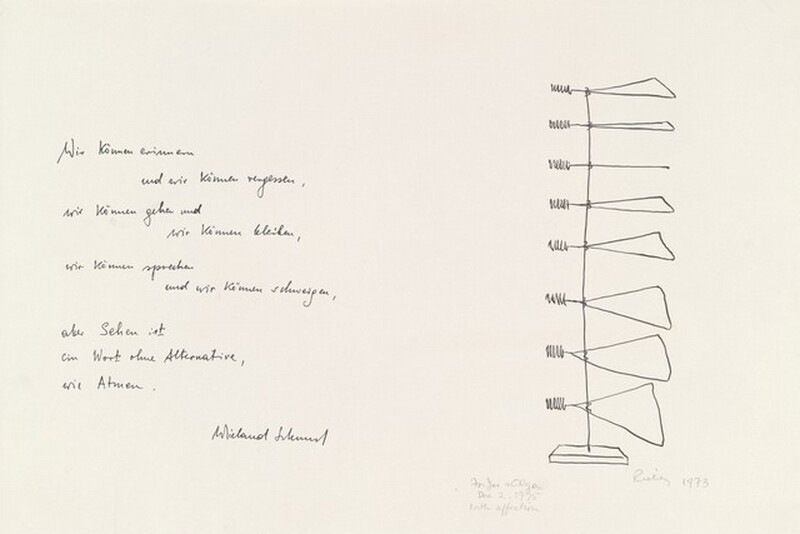 Wir können erinnern
und wir können vergessen,
wir können gehen und
wir können bleiben,
wir können sprechen
und wir können schweigen,
aber Sehen ist
ein Wort ohne Alternative,
wie Atmen.
Wieland Schmied
Rickey 1973
For
Dec 2, 1975
with affection